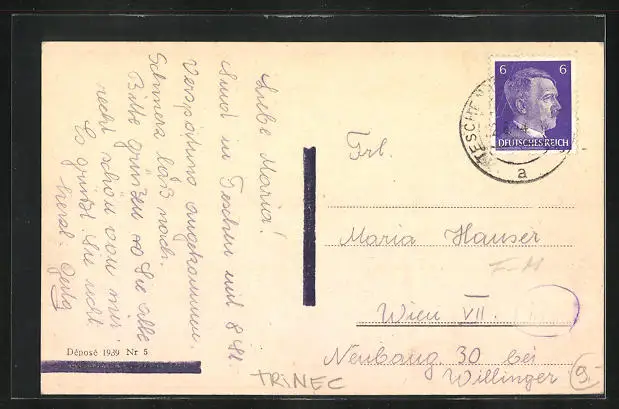 Liebe Maria!
Sind in Teschen mit 8 St.
Verspätung angekommen.
Schmerz läßt nach.
Bitte grüßen Sie alle
recht schön von mir.
Es grüßt Sie recht
herzl. Gerty
Déposé 1939 Nr 5
6 6
DEUTSCHES REICH
TESCHEN
a
Frl.
Maria Hauser
F-M
Wien VII.
Neubaug 30 bei
Willinger
TRINEC